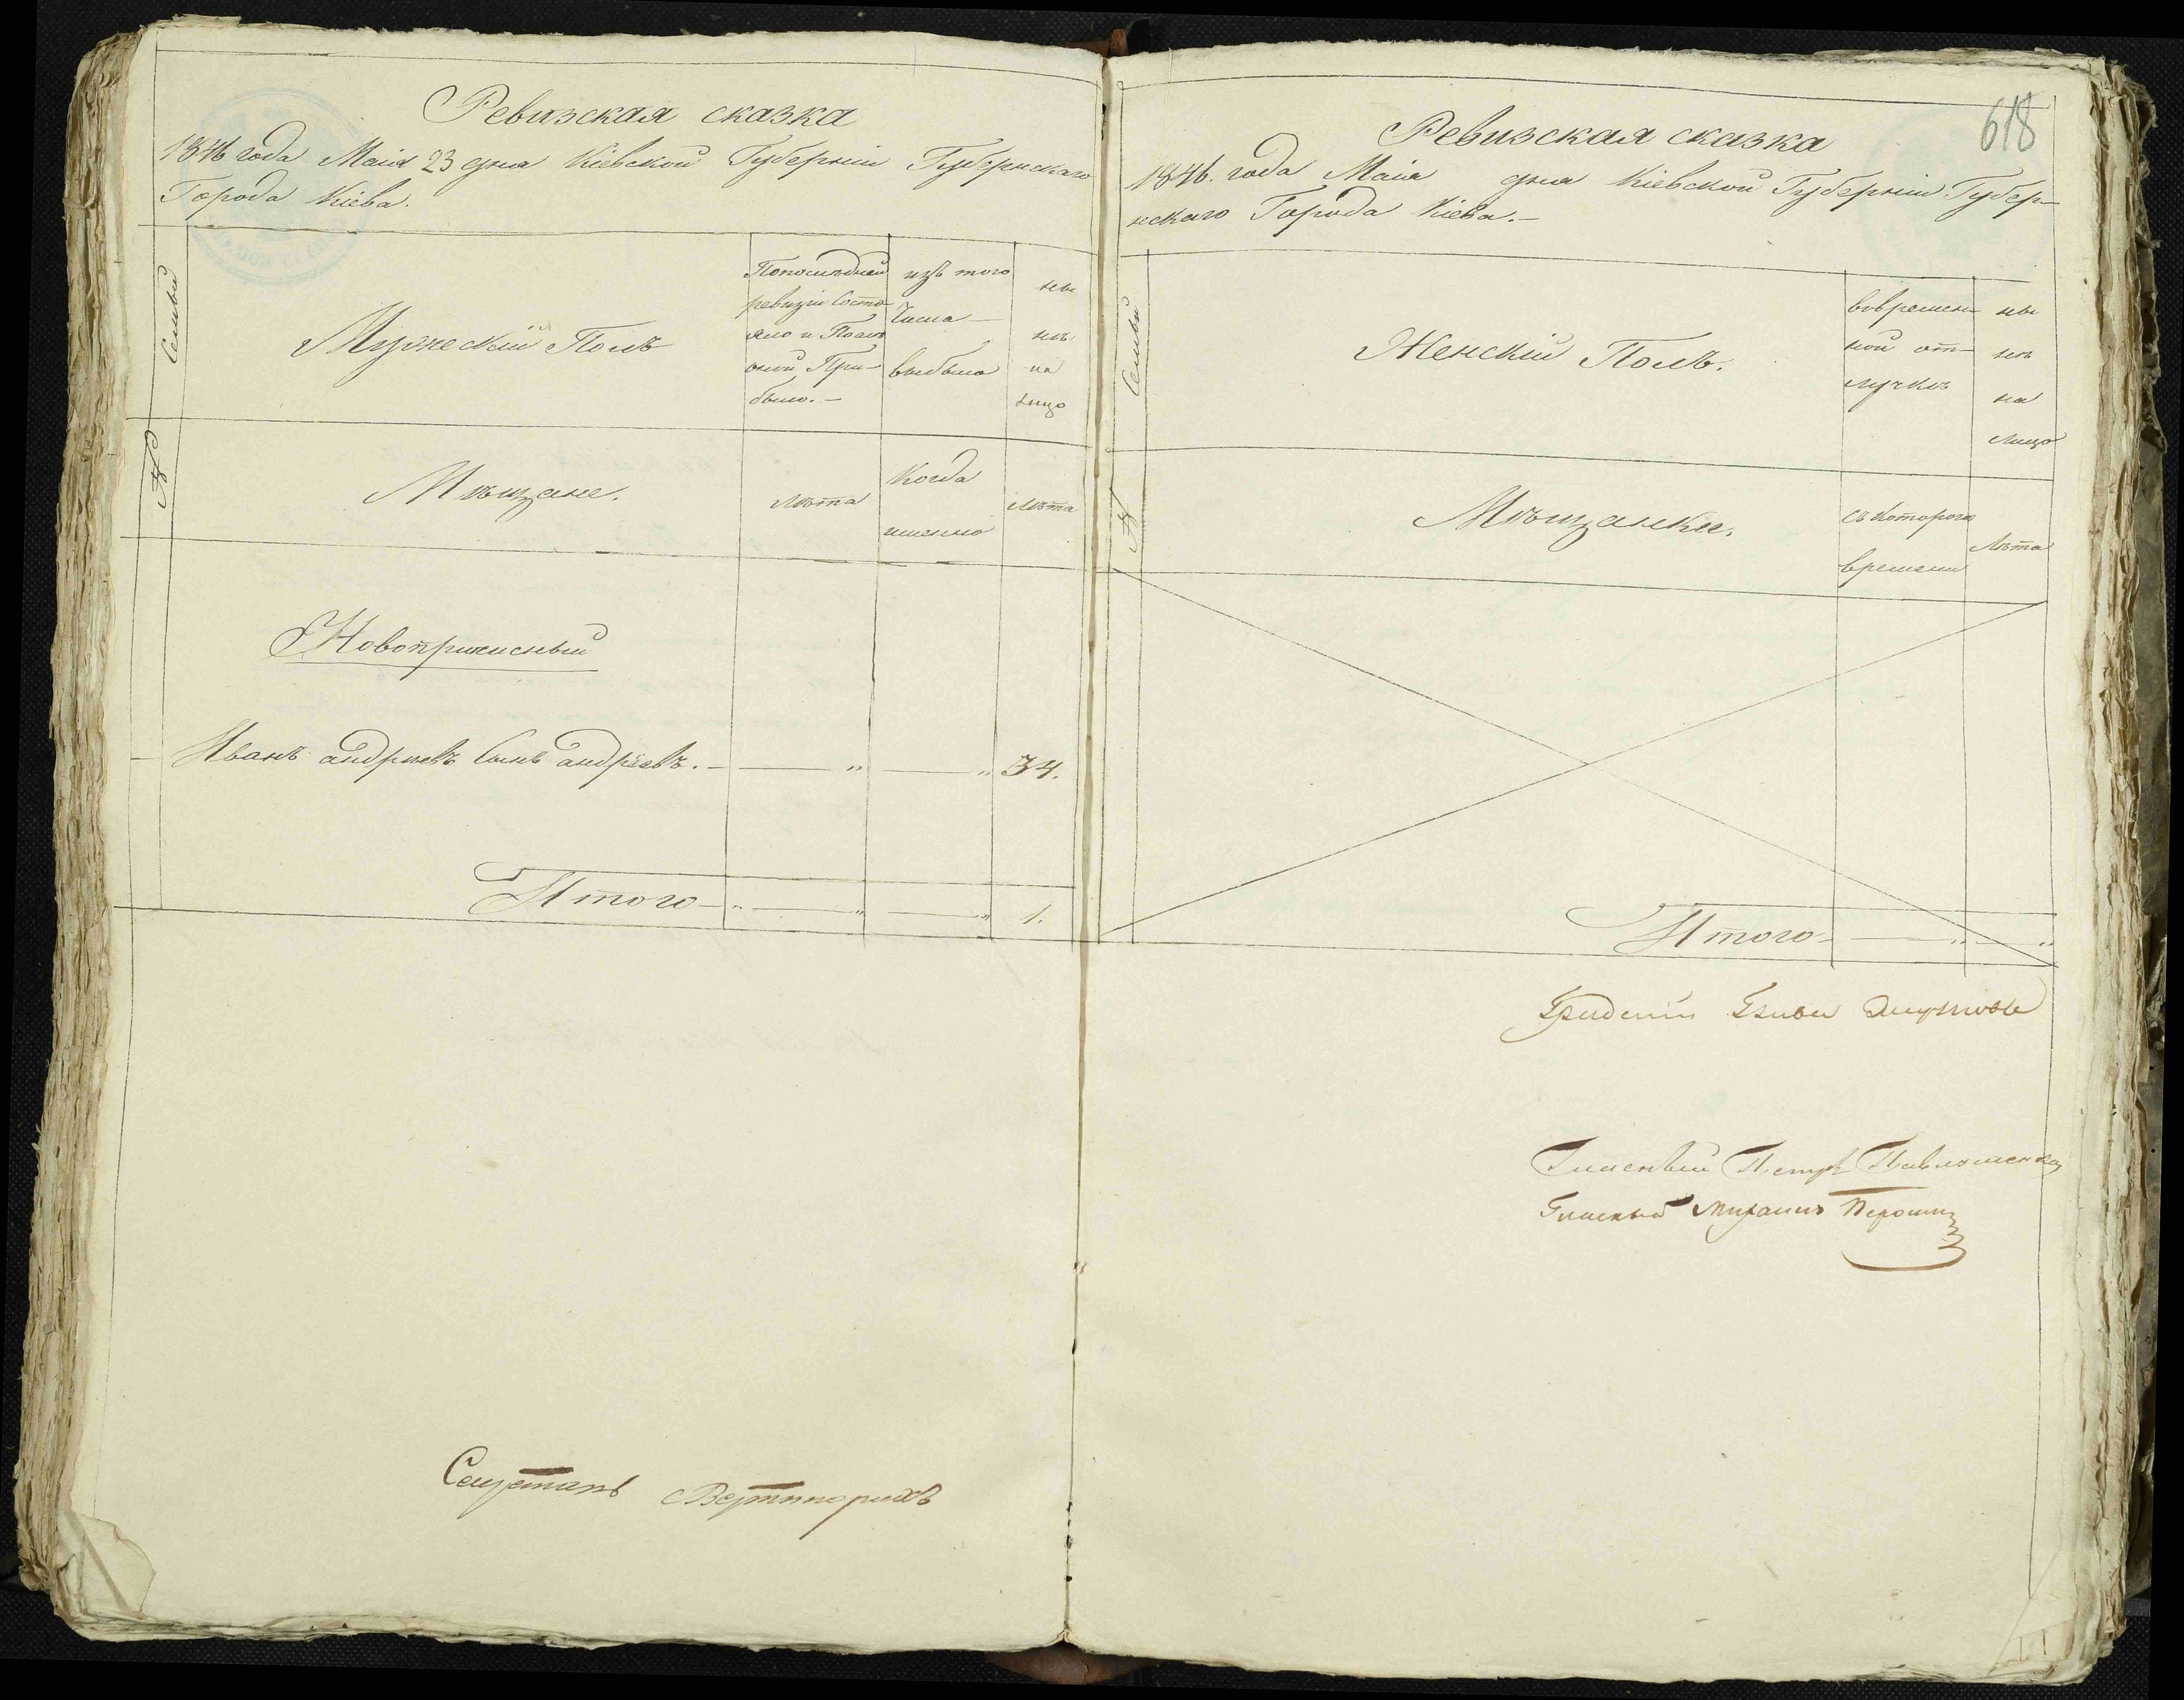 Ревизская сказка
1846 года Маія 23 дня Кіевской Губерніи Губернскаго
Города Кіева.
№ Семьи
Мужескій Полъ
Попослѣдней
ревизіи Состо-
яло и Послѣ
оной При-
было.—
изъ того
Числа—
выбыло
ны
нѣ
на
лицо
Мѣщане.
Лѣта
Когда
именно
Лѣта
Новоприписный
Иванъ андреевъ Сынъ андреевъ.— — " — " 34.
Итого — " — " — " 1.
618
Ревизская сказка
1846. года Маія дня Кіевской Губерніи Губер-
нскаго Города Кіева.—
№ Семьи
Женскій Полъ.
вовремен-
ной от-
лучкѣ
ны
нѣ
на
лицо
Мѣщанки.
съ Котораго
времени
Лѣта
Итого — " — "
Гласный Петръ
Гласный Михаилъ